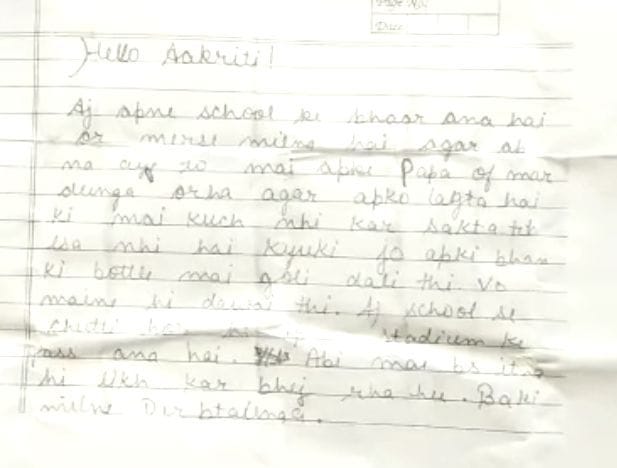 Page No.
Date
Hello Aakriti!
Aj apne school ke bhaar ana hai
or merse milne hai agar ap
na aye to mai apke Papa of mar
dunga orha agar apko lagta hai
ki mai kuch nhi kar sakta
esa nhi hai kyuki jo apki bhan
ki bottle mai goli dali thi vo
maine hi dawai thi. Aj school se
chutti stadium ke
pass ana hai. Abi mai bs itna
hi likh kar bhej rha hu. Baki
milne btaunga.